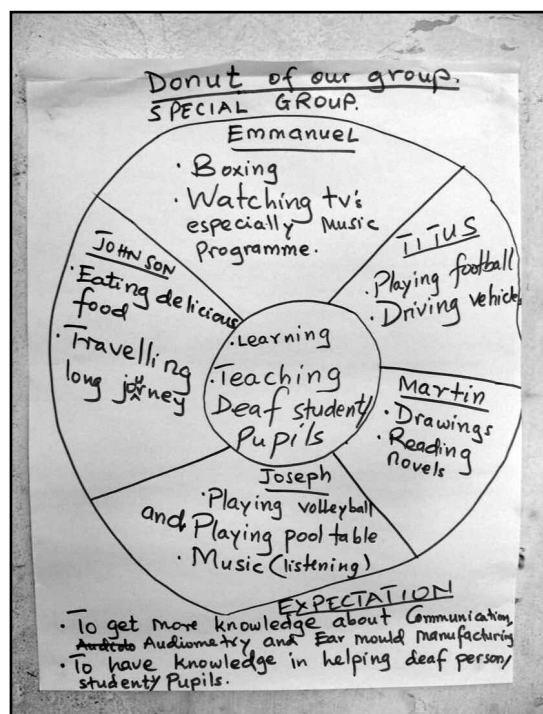 Donut of our group.
SPECIAL GROUP.
Emmanuel
· Boxing
· Watching tv's
especially Music
Programme.
TITUS
· Playing football
· Driving vehicle
Martin
· Drawings
· Reading
novels
Joseph
· Playing volleyball
and Playing pool table
· Music (listening)
JOHNSON
· Eating delicious
food
· Travelling
long journey
· Learning
· Teaching
Deaf student/
Pupils
EXPECTATION
· To get more knowledge about Communication,
Audiometry and Ear mould manufacturing
· To have knowledge in helping deaf person/
student/Pupils.